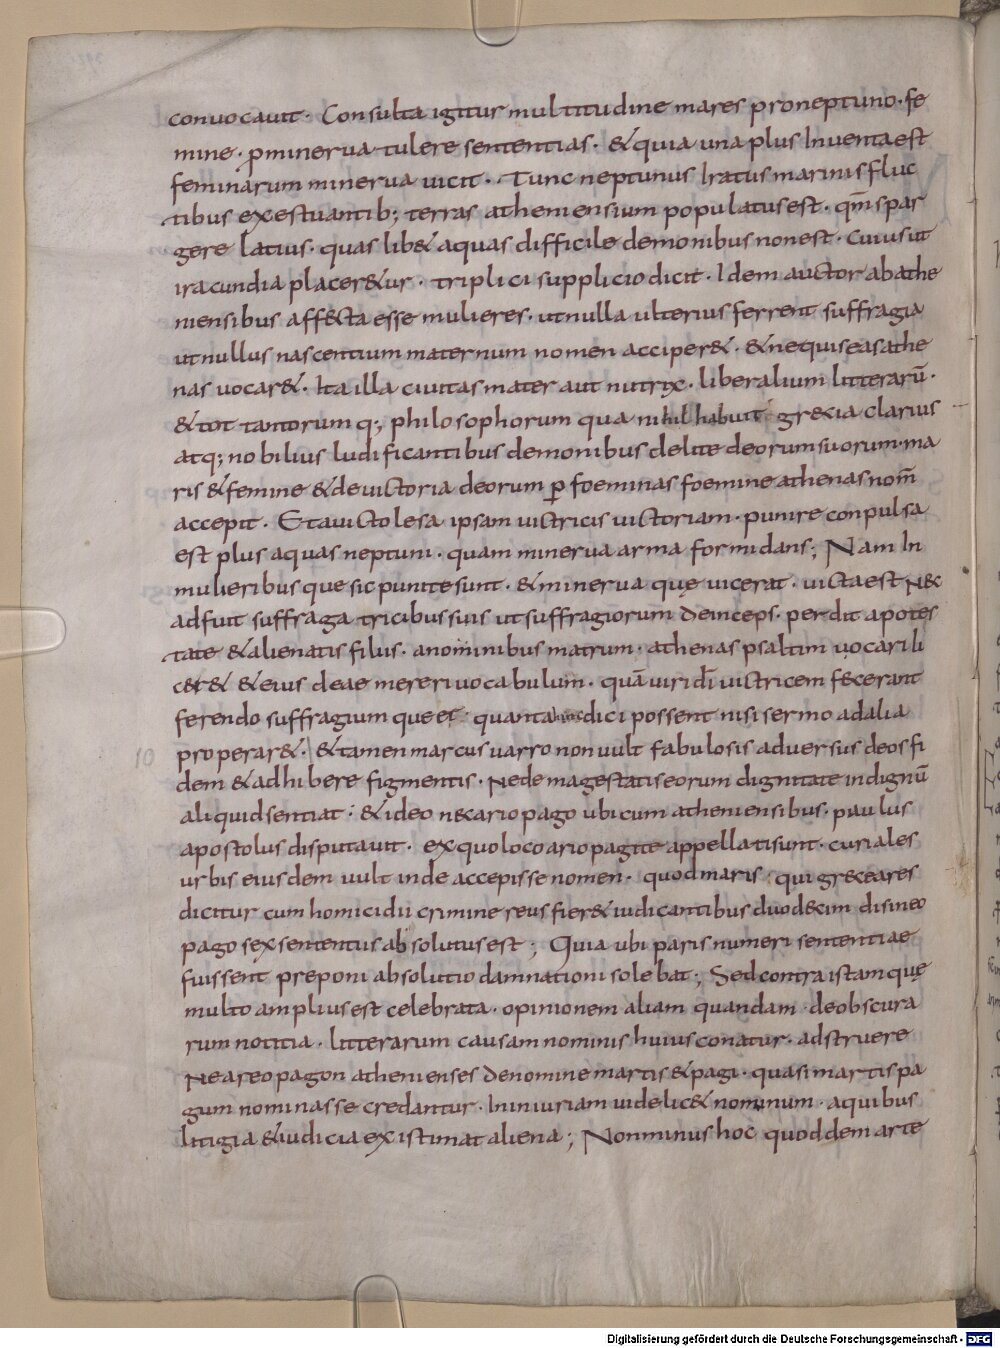 conuocauit · Consulta igitur multitudine mares proneptuno · fe
mine · ꝑminerua tulere sententias · &quia una plus Inuenta est
feminarum minerua uicit · Tunc neptunus Iratus marinis fluc
tibus exestuantib; terras atheniensium populatus est · qm̄ spar
gere latius · quas lib& aquas difficile demonibus non est · Cuius ut
iracundia placer&ur · triplici supplicio dicit · Idem auctor abathe
niensibus affecta esse mulieres · ut nulla ulterius ferrent suffragia
ut nullus nascentium maternum nomen acciper& · &nequiseas athe
nas uocar& · Ita illa ciuitas mater aut nutrix · liberalium litterarū ·
&tot tantorum q; philosophorum qua nihil habuit grecia clarius
atq; nobilius ludificantibus demonibus delite deorum suorum · ma
ris &femine &deuictoria deorum ꝑ foeminas foemine athenas nom̄
accepit · Et auicto lesa ipsam uictricis uictoriam · punire conpulsa
est plus aquas neptuni · quam minerua arma formidans; Nam In
mulieribus que sic punite sunt · &minerua quę uicerat · uicta est Nec
adfuit suffraga tricibus suis ut suffragiorum deinceps · perdit apotes
tate &alienatis filus · anominibus matrum · athenas psaltim uocari li
cer& &eius deae mereri uocabulum · quā uiri dī uictricem fecerant
ferendo suffragium que et · quanta hinc dici possent nisi sermo adalia
properar& · &tamen marcus uarro non uult fabulosis aduersus deos fi
dem &adhibere figmentis · Nede magestatis eorum dignitate indignū
aliquid sentiat · &ideo nec ario pago ubi cum atheniensibus · paulus
apostolus disputauit · ex quo loco ario pagite appellati sunt · curiales
urbis eiusdem uult inde accepisse nomen · quod maris · qui grece ares
dicitur cum homicidii crimine reus fier& iudicantibus duodecim disineo
pago sex sententiis absolutus est; Quia ubi paris numeri sententiae
fuissent preponi absolutio damnationi solebat; Sed contra istam quę
multo amplius est celebrata · opinionem aliam quandam · de obscura
rum notitia · litterarum causam nominis huius conatur · adstruere
Ne areo pagon athenienses denomine martis &pagi · quasi martis pa
gum nominasse credantur · In iniuriam uidelic& nominum · aquibus
litigia &iudicia existimat aliena; Non minus hoc quod dem arte
10
Digitalisierung gefördert durch die Deutsche Forschungsgemeinschaft - DFG